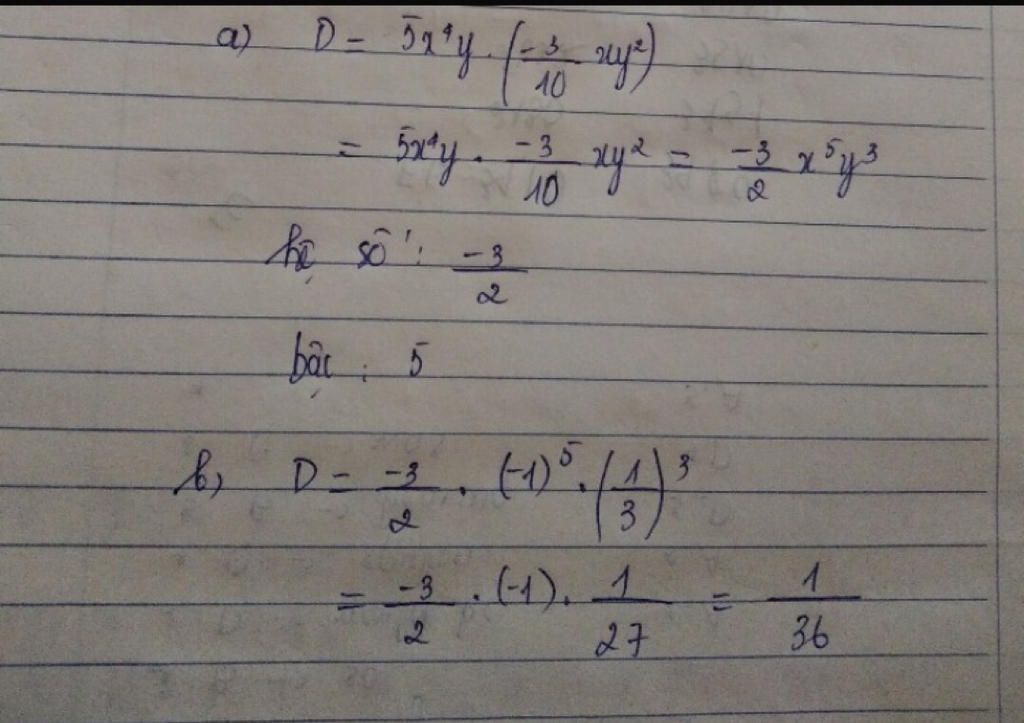 a) D = 5x⁴y . (-3/10 xy²)
= 5x⁴y . -3/10 xy² = -3/2 x⁵y³
hệ số : -3/2
bậc : 5
b, D = -3/2 . (-1)⁵ . (1/3)³
= -3/2 . (-1) . 1/27 = 1/36